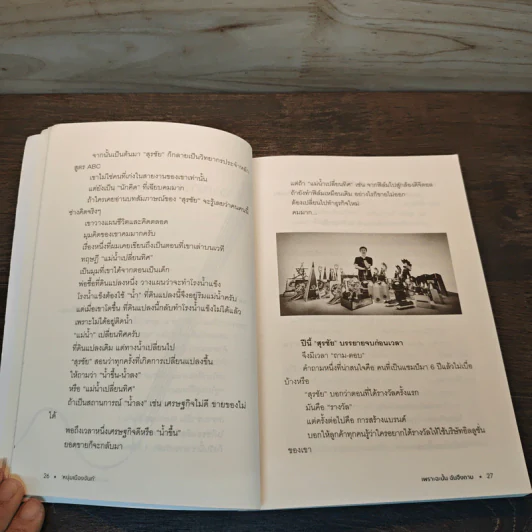 จากนั้นเป็นต้นมา "สุรชัย" ก็กลายเป็นวิทยากรประจำหลัก
สูตร ABC
เขาไม่ใช่คนที่เก่งในสายงานของเขาเท่านั้น
แต่ยังเป็น "นักคิด" ที่เฉียบคมมาก
ถ้าใครเคยอ่านบทสัมภาษณ์ของ "สุรชัย" จะรู้เลยว่าคนคนนี้
ช่างคิดจริงๆ
เขาวางแผนชีวิตและคิดตลอด
มุมคิดของเขาคมมากครับ
เรื่องหนึ่งที่ผมเคยเขียนถึงเป็นตอนที่เขาเล่าบนเวที
ทฤษฎี "แม่น้ำเปลี่ยนทิศ"
เป็นมุมที่เขาได้จากตอนเป็นเด็ก
พ่อซื้อที่ดินแปลงหนึ่ง วางแผนว่าจะทำโรงน้ำแข็ง
โรงน้ำแข็งต้องใช้ "น้ำ" ที่ดินแปลงนี้จึงอยู่ริมแม่น้ำครับ
แต่เมื่อเขาโตขึ้น ที่ดินแปลงนี้กลับทำโรงน้ำแข็งไม่ได้แล้ว
เพราะไม่ได้อยู่ติดน้ำ
"แม่น้ำ" เปลี่ยนทิศครับ
ที่ดินแปลงเดิม แต่ทางน้ำเปลี่ยนไป
"สุรชัย" สอนว่าทุกครั้งที่เกิดการเปลี่ยนแปลงขึ้น
ให้ถามว่า "น้ำขึ้น-น้ำลง"
หรือ "แม่น้ำเปลี่ยนทิศ"
ถ้าเป็นสถานการณ์ "น้ำลง" เช่น เศรษฐกิจไม่ดี ขายของไม่
ได้
พอถึงเวลาหนึ่งเศรษฐกิจดีหรือ "น้ำขึ้น"
ยอดขายก็จะกลับมา
26 • หนุ่มเมืองจันท์
แต่ถ้า "แม่น้ำเปลี่ยนทิศ" เช่น จากฟิล์มไปสู่กล้องดิจิตอล
ถ้ายังทำฟิล์มเหมือนเดิม อย่างไรก็ขายไม่ออก
ต้องเปลี่ยนไปทำธุรกิจใหม่
คมมาก...
ปีนี้ "สุรชัย" บรรยายจบก่อนเวลา
จึงมีเวลา "ถาม-ตอบ"
คำถามหนึ่งที่น่าสนใจคือ คนที่เป็นแชมป์มา 6 ปีแล้วไม่เบื่อ
บ้างหรือ
"สุรชัย" บอกว่าตอนที่ได้รางวัลครั้งแรก
มันคือ "รางวัล"
แต่ครั้งต่อไปคือ การสร้างแบรนด์
บอกให้ลูกค้าทุกคนรู้ว่าใครอยากได้รางวัลให้ใช้บริษัทอิลลูชั่น
ของเขา
เพราะฉะนั้น ฉันจึงถาม • 27